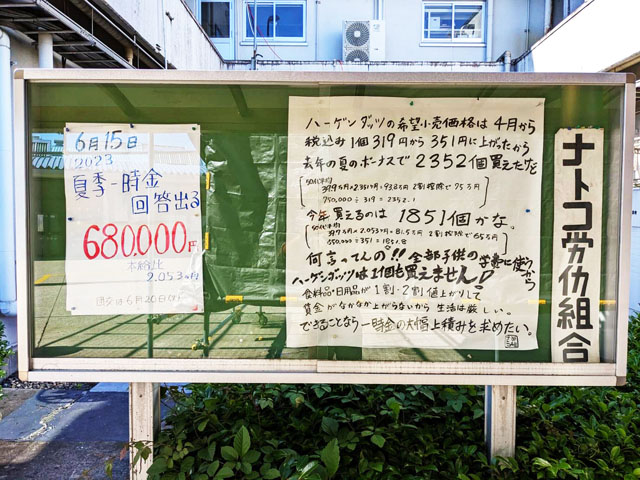 6月15日
2023
夏季一時金
回答出る
680000円
本給比
2.053ヶ月
団交は6月20日(火)
ハーゲンダッツの希望小売価格は4月から
税込み1個319円から351円に上がったから
去年の夏のボーナスで2352個買えたけど
50代平均
39.9万円×2.351ヶ月=93.8万円 2割控除で75万円
750,000÷319=2352.1
今年買えるのは1851個かな。
50代平均
39.7万円×2.053ヶ月=81.5万円 2割控除で65万円
650,000÷351=1851.8
何言ってんの!!全部子供の学費に使うから
ハーゲンダッツは1個も買えません!
食料品・日用品が1割・2割値上がりして
賃金がなかなか上がらないから生活は厳しい。
できることなら一時金の大幅上積みを求めたい。
ナトコ労仂組合